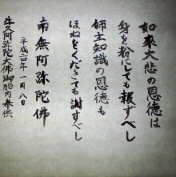 如来大悲の恩徳は
身を粉にしても報ずべし
師主知識の恩徳も
ほねをくだきても謝すべし
南無阿弥陀佛
平成二四年一月八日
牛久阿弥陀大佛御胎内奉供